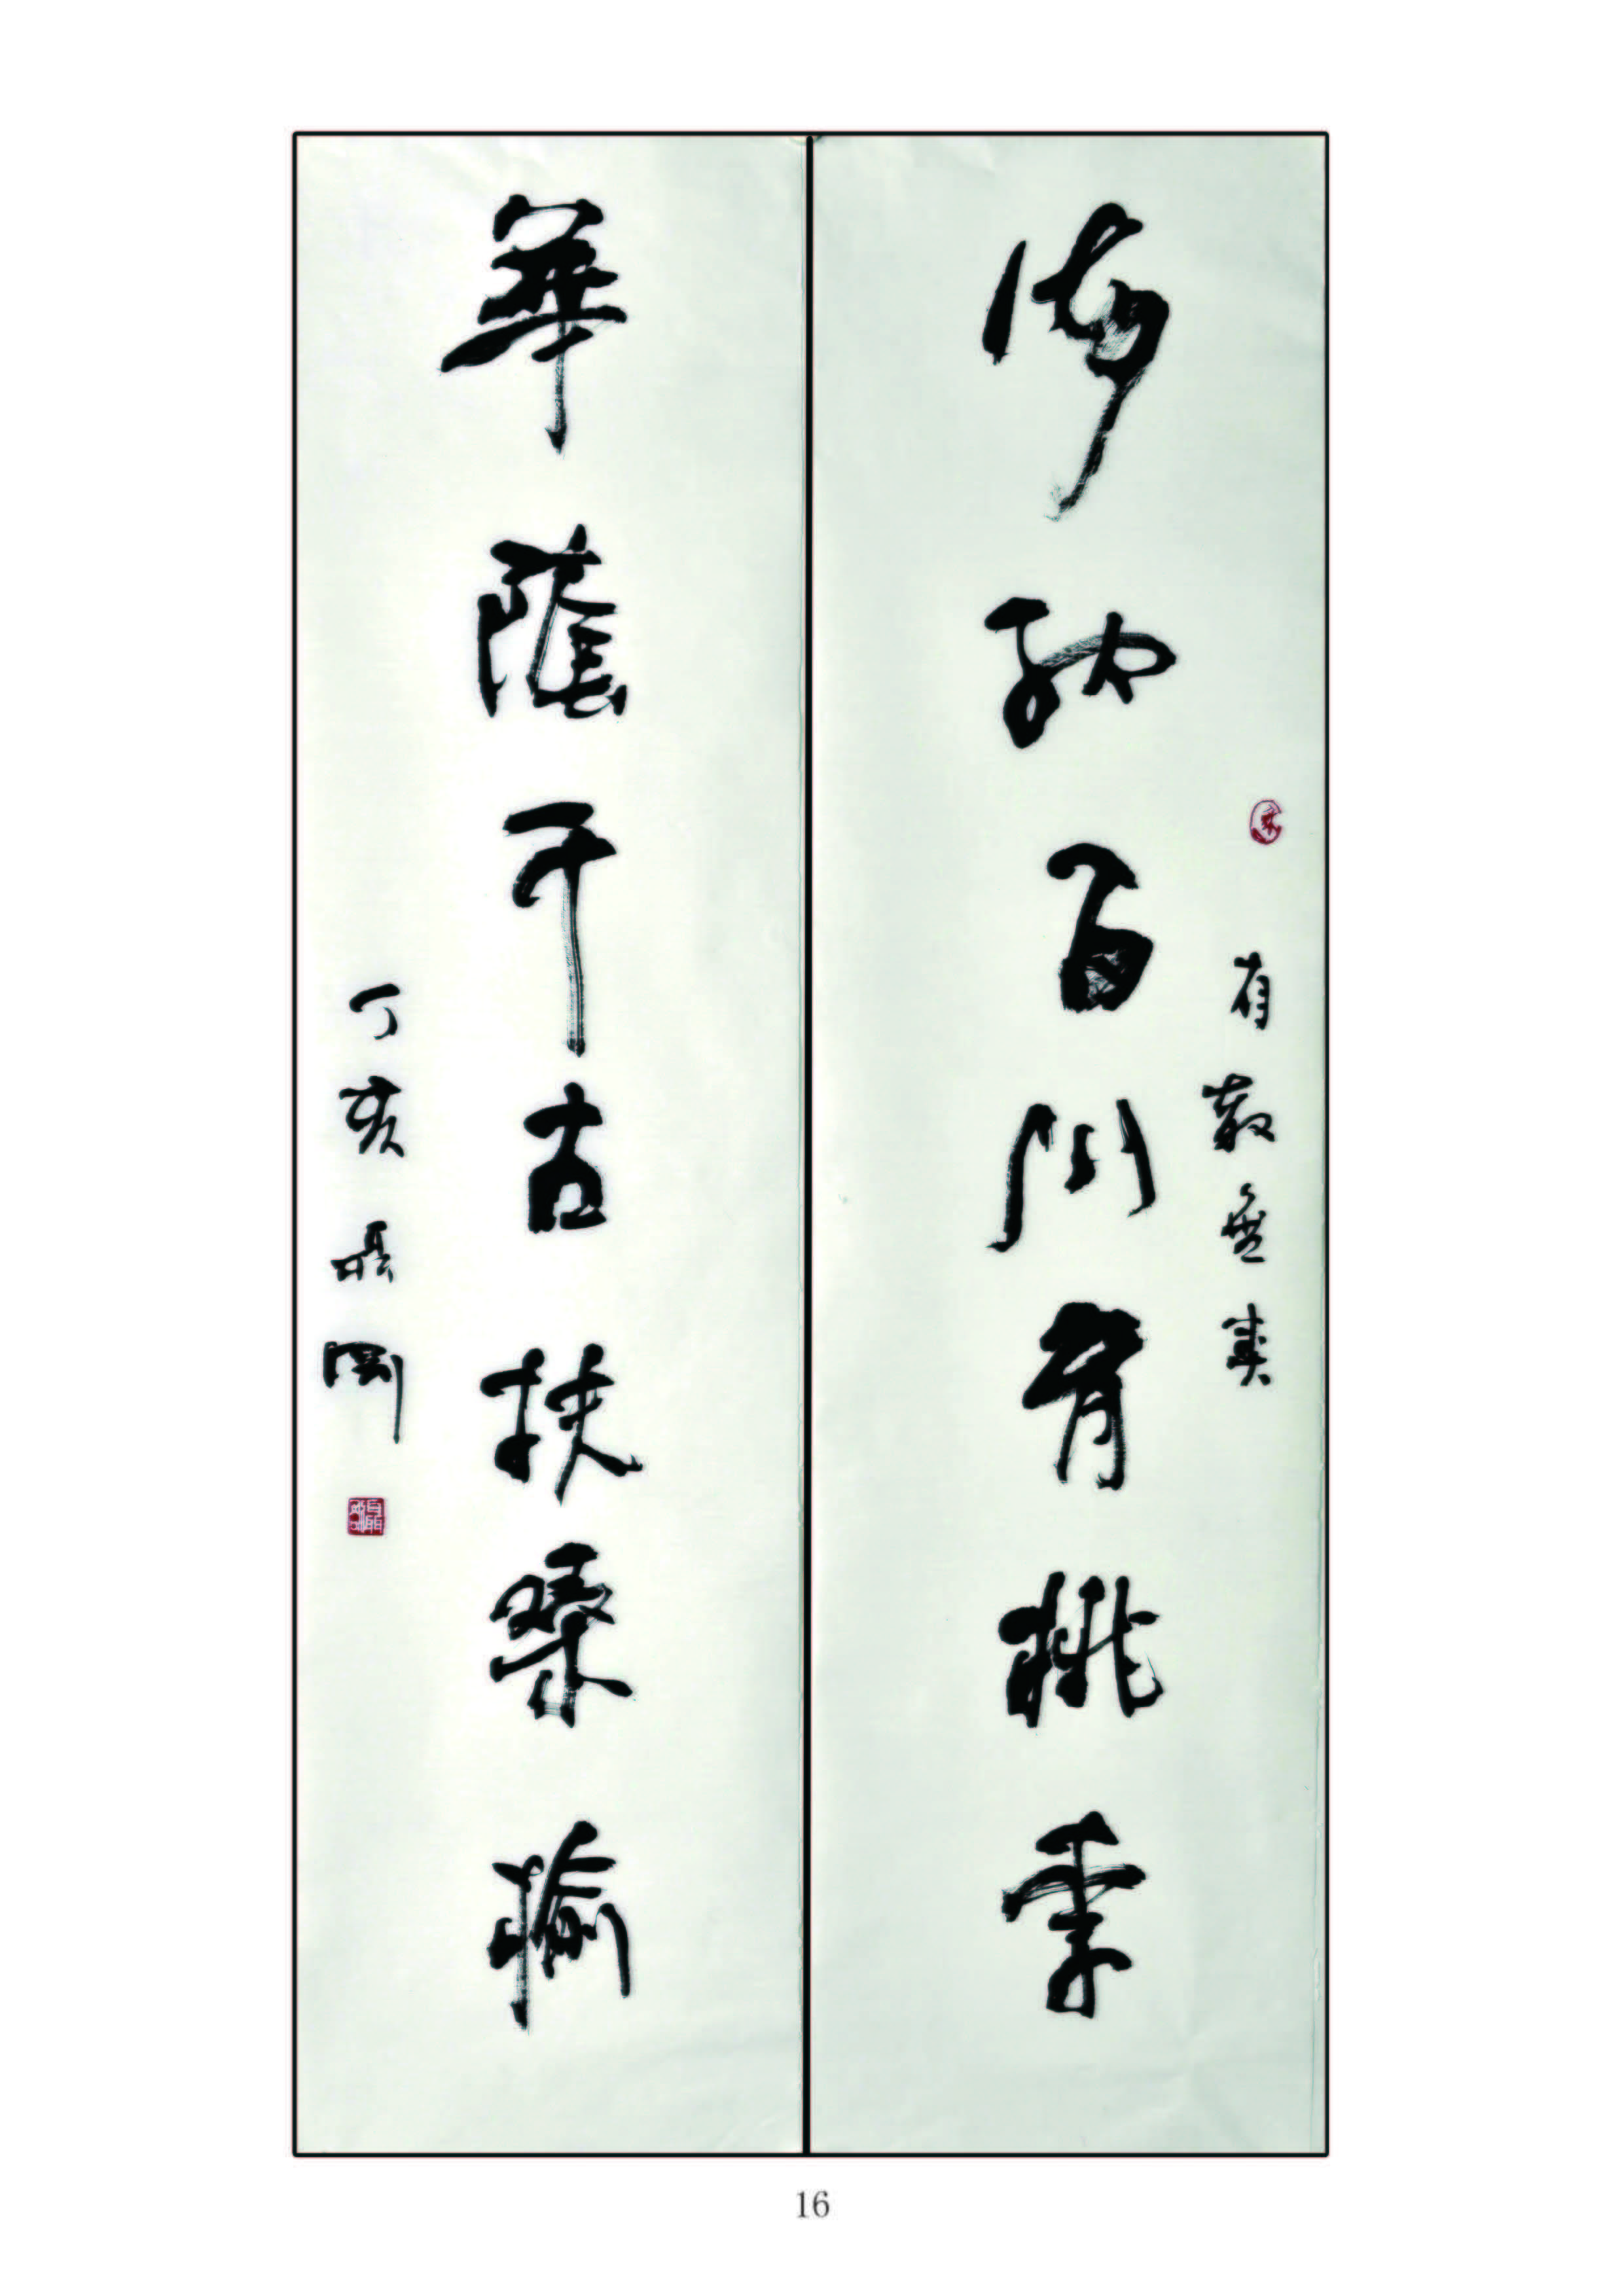 有教無類
海納百川育桃李
華蔭千古扶桑榆
丁亥聶剛
16